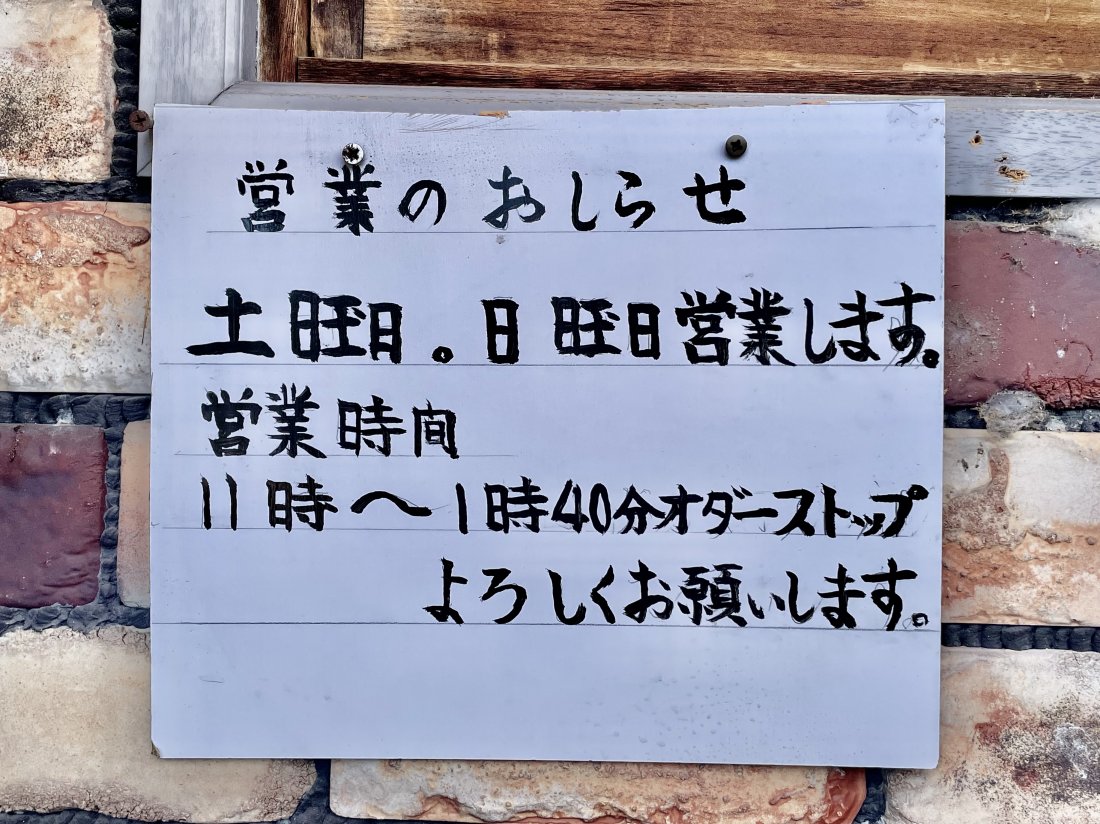 営業のおしらせ
土曜日。日曜日営業します。
営業時間
11時〜1時40分オダーストップ
よろしくお願いします。